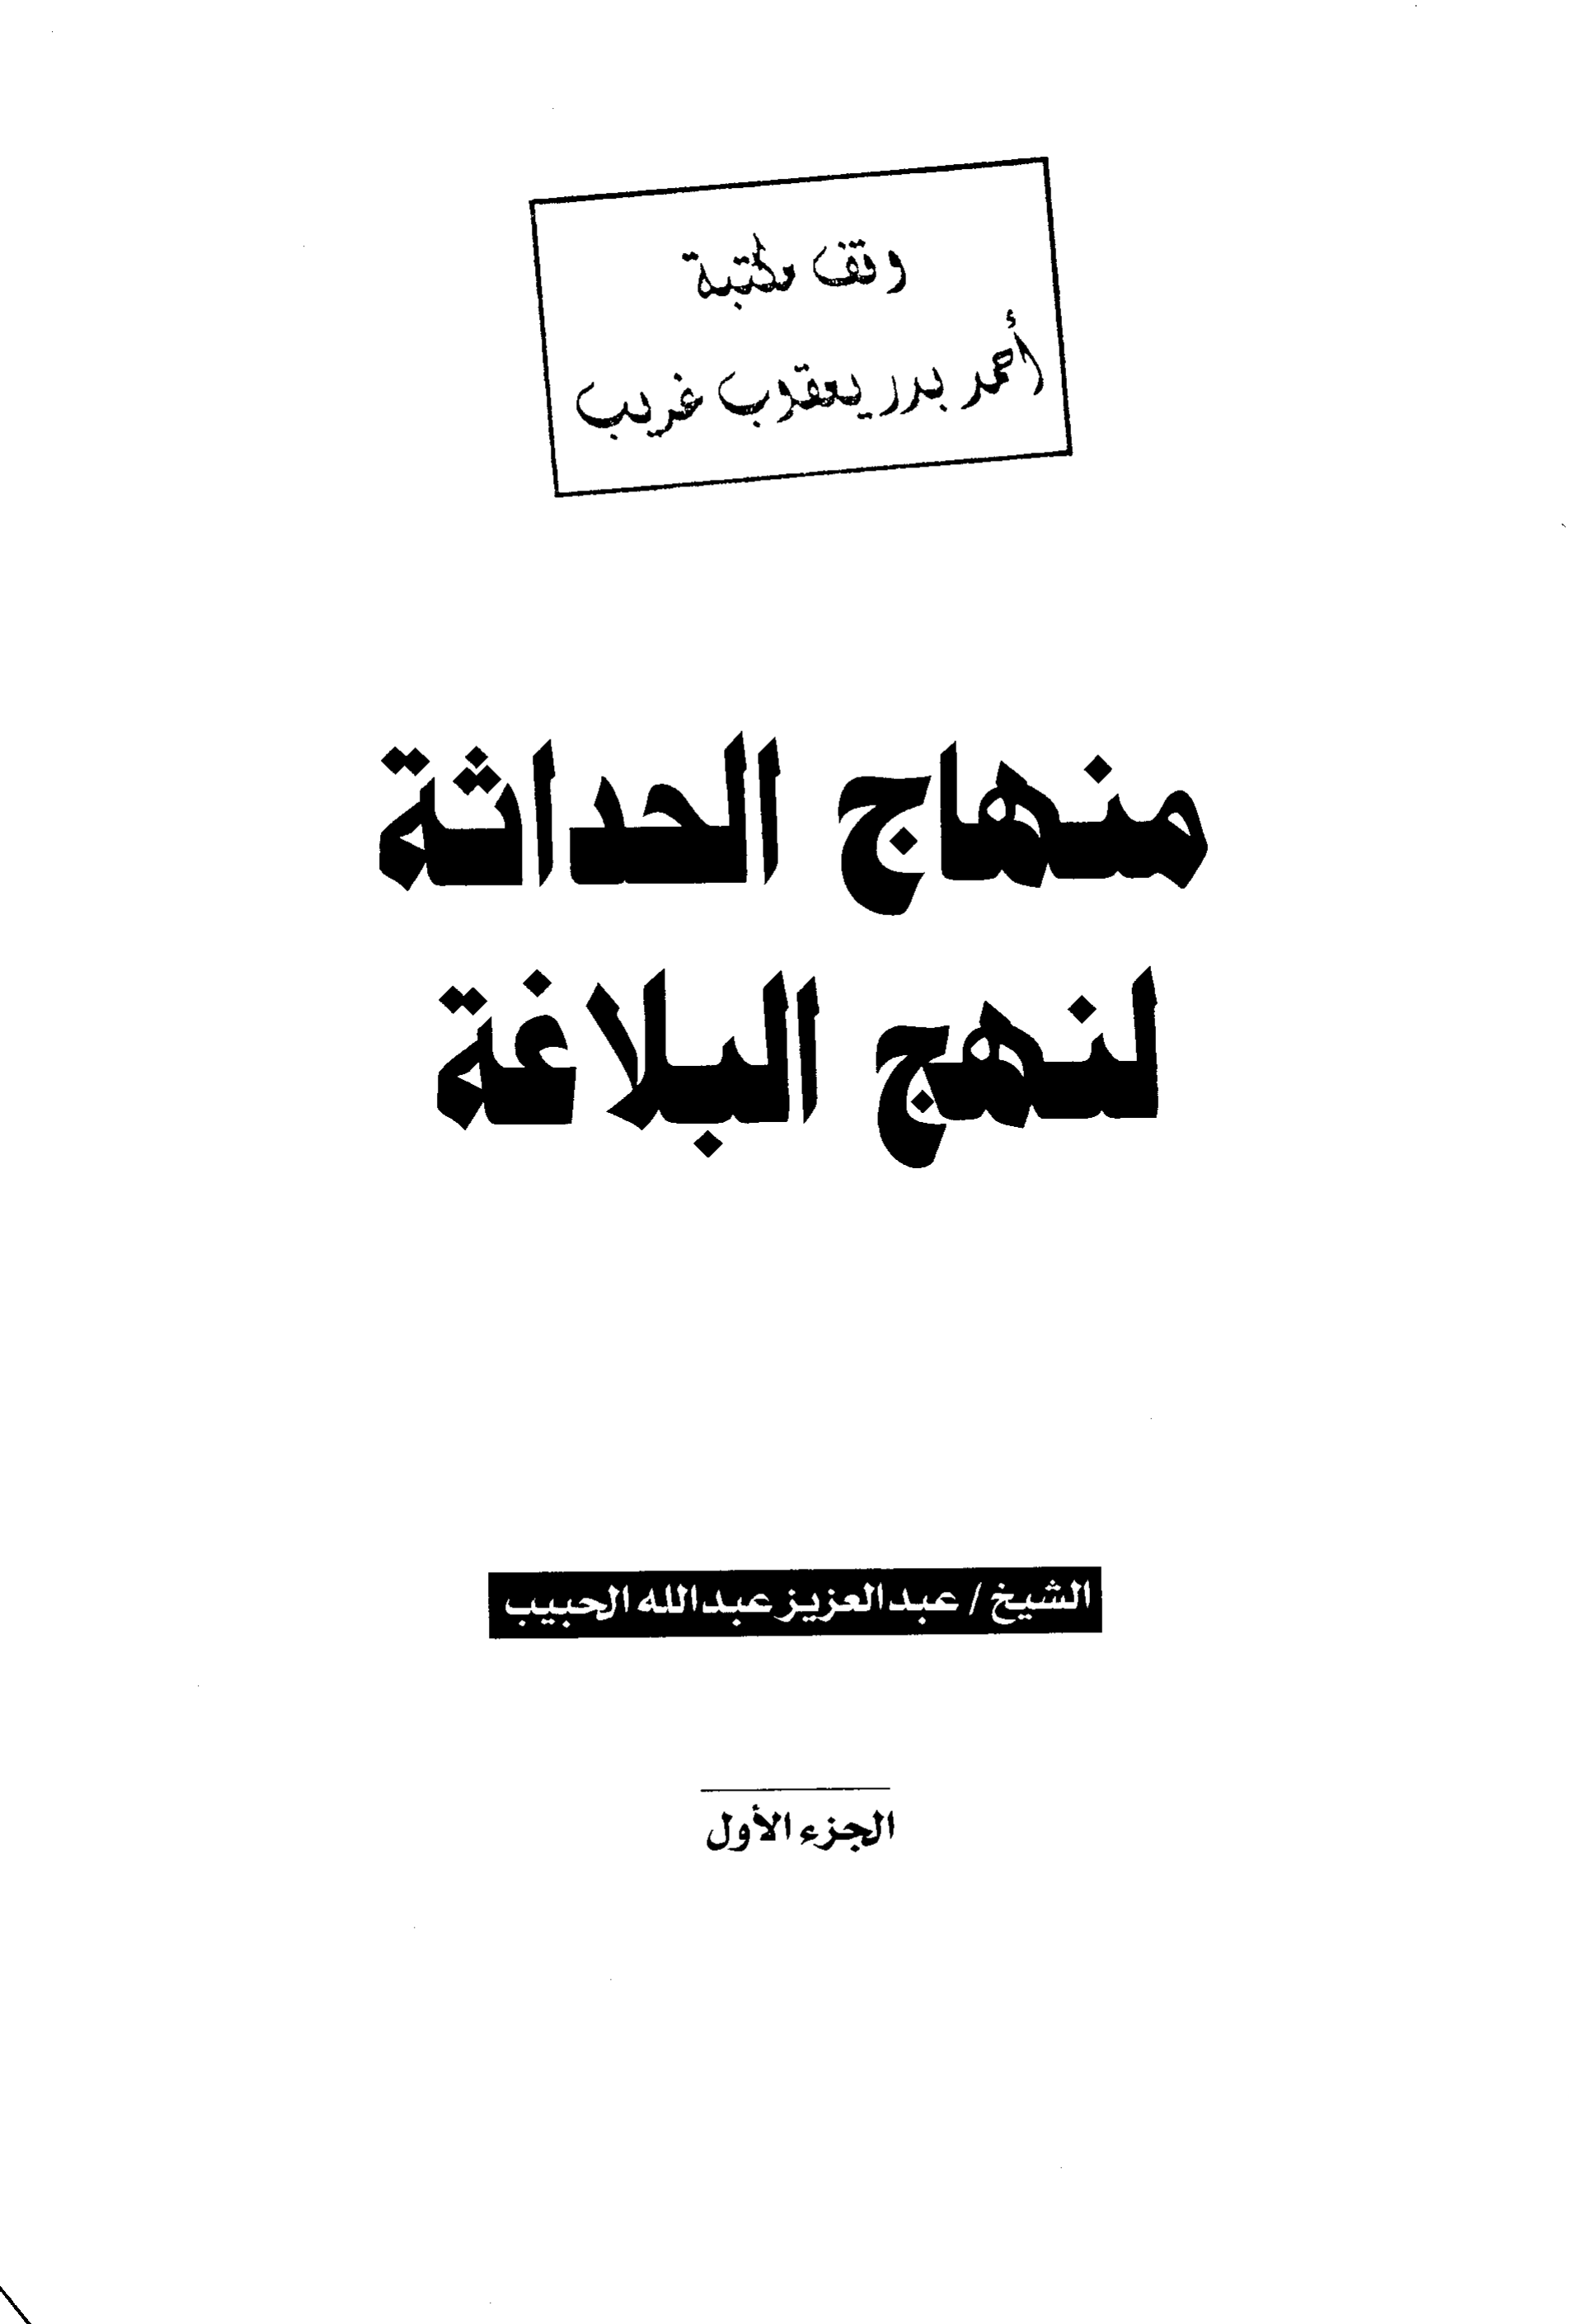 وقف مكتبة
أحمد بدر يعقوب غريب
منهاج الحداثة
لنهج البلاغة
الشيخ / عبد العزيز عبد الله الحبيب
الجزء الأول